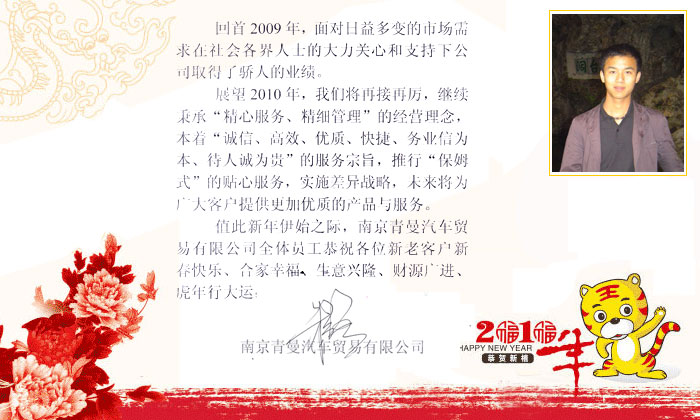 回首2009年，面对日益多变的市场需
求在社会各界人士的大力关心和支持下公
司取得了骄人的业绩。
展望2010年，我们将再接再厉，继续
秉承“精心服务、精细管理”的经营理念，
本着“诚信、高效、优质、快捷、务业信为
本、待人诚为贵”的服务宗旨，推行“保姆
式”的贴心服务，实施差异战略，未来将为
广大客户提供更加优质的产品与服务。
值此新年伊始之际，南京青曼汽车贸
易有限公司全体员工恭祝各位新老客户新
春快乐、合家幸福、生意兴隆、财源广进、
虎年行大运
南京青曼汽车贸易有限公司
2福1福年
HAPPY NEW YEAR
恭贺新禧
王